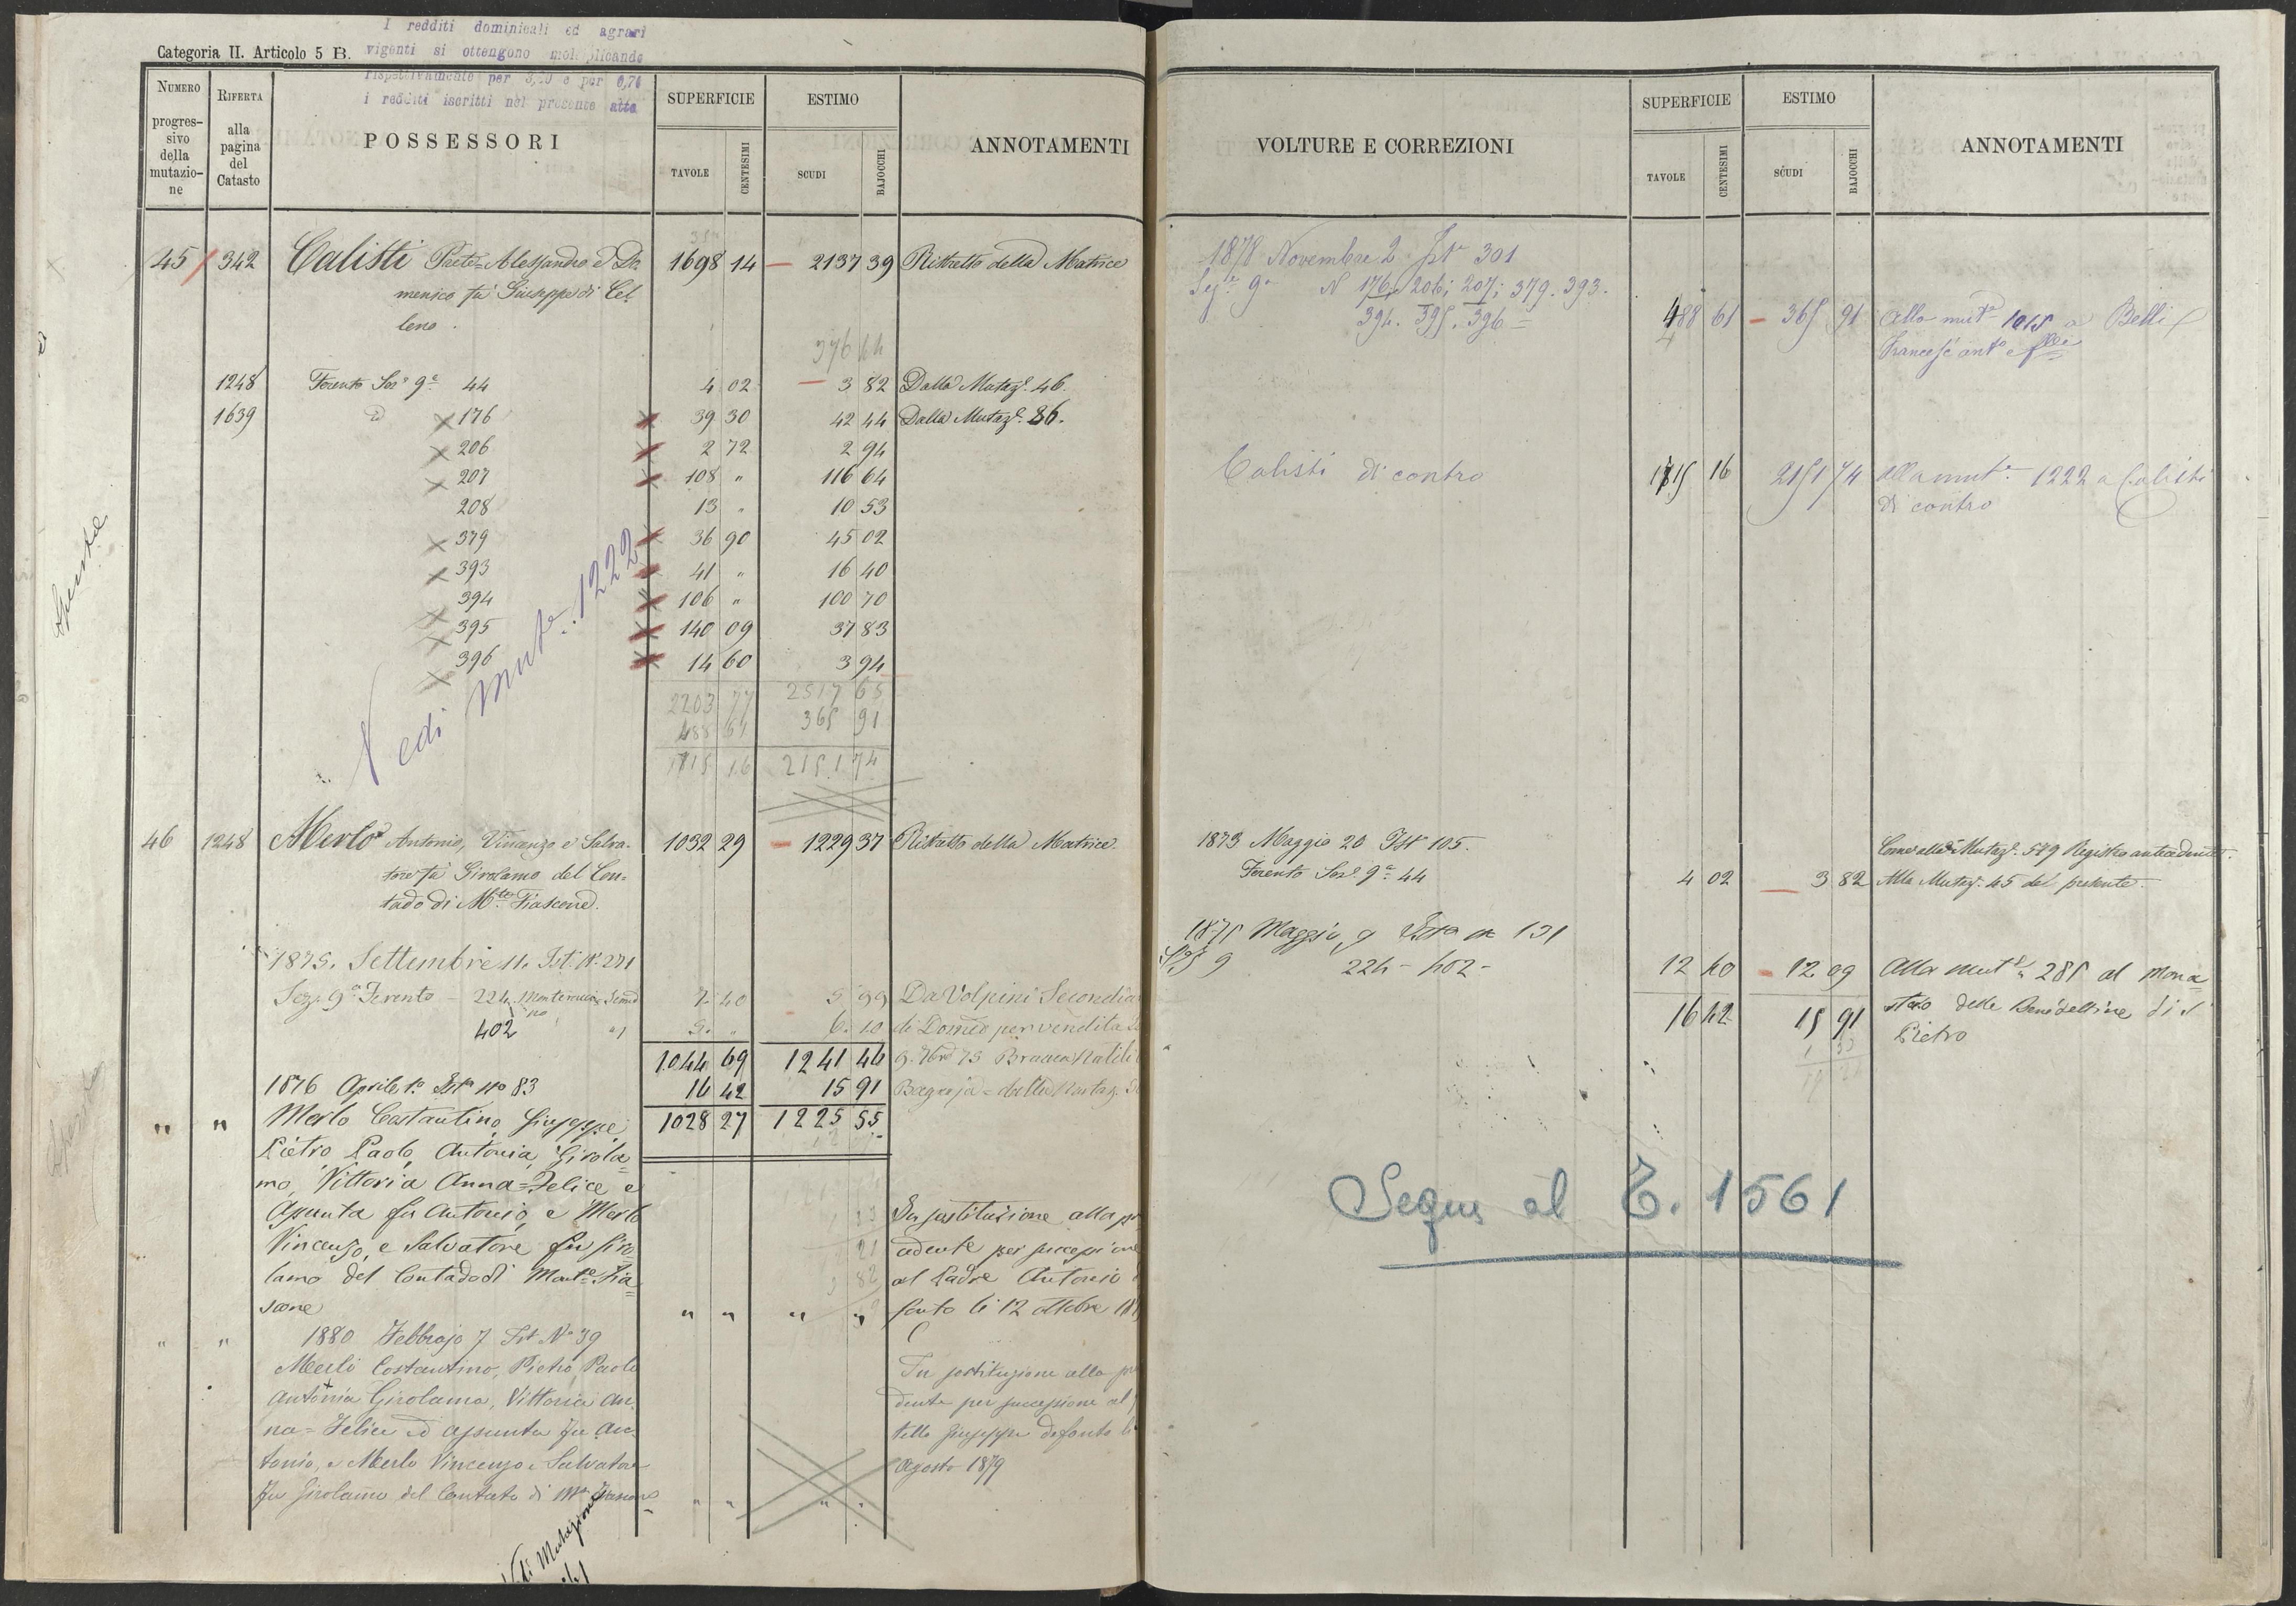 I redditi dominicali ed agrari
vigenti si ottengono moltiplicando
rispettivamente per e per 0,76
i redditi iscritti nel presente atto
Categoria II. Articolo 5 B.
NUMERO progressivo della mutazione
RIFERTA alla pagina del Catasto
POSSESSORI
SUPERFICIE TAVOLE CENTESIMI
ESTIMO SCUDI BAJOCCHI
ANNOTAMENTI
45 342 Calisti Paeto Alessandro e Do- 1698 14 2137 39 Ristretto della Matrice
menico fu Giuseppe di Cel
leno
376 44
1248 Ferento Sez.e 9.a 44 4 02 3 82 Dalla Mutaz.e 46.
1639 id 176 39 30 42 44 Dalla Mutaz.e 86.
206 2 72 2 94
207 108 " 116 64
208 13 " 10 53
379 36 90 45 02
393 41 " 16 40
394 106 " 100 70
395 140 09 37 83
396 14 60 3 94
2203 77 2517 65
488 61 365 91
1715 16 2151 74
Vedi mut.e 1222
46 1248 Merlo Antonio, Vincenzo e Salva- 1032 29 1229 37 Ristretto della Matrice
tore fu Girolamo del Con=
tado di M.te Fiascone.
1875. Settembre 11. Ist. N. 271
Sez. 9.a Ferento - 224. 7. 40 5 99 Da Volpini Secondia
402 5. " 6. 10 di Domco per vendita
1044 69 1241 46
1876 Aprile 1.o Ist.a No 83 16 42 15 91
" " Merlo Costantino, Giuseppe, 1028 27 1225 55
Pietro Paolo, Antonia, Girola=
mo, Vittoria Anna=Felice e
Assunta fu Antonio, e Merlo In sostituzione alla pr
Vincenzo, e Salvatore fu Giro- cedente per successione
lamo del Contado di Monte Fia= al Padre Antonio
scone " " " " fonto li 12 ottobre 18
" " 1880 Febbrajo 7 Ist. No 39
Merli Costantino, Pietro Paolo In sostituzione alla pre
Antonia Girolama, Vittoria An- dente per successione al
na=Felice ed Assunta fu An- tello Giuseppe defonto li
tonio, e Merlo Vincenzo e Salvatore Agosto 1879
fu Girolamo del Contado di M.te Fiascone " " " "
Vedi Mutazione
VOLTURE E CORREZIONI
SUPERFICIE TAVOLE CENTESIMI
ESTIMO SCUDI BAJOCCHI
ANNOTAMENTI
1878 Novembre 2 Ist.a 301
Sez.e 9.a N 176, 206; 207; 379. 393.
394. 395. 396 = 488 61 365 91 Alla mut.e 1015 a Belli
Calisti di contro 1715 16 2151 74 alla mut.e 1222 a Calisti
di contro
1873 Maggio 20 Ist.a 105. Come alla Mutaz.e 519 Registro antecedente.
Ferento Sez.e 9.a 44 4 02 3 82 Alla Mutaz.e 45 del presente.
1875 Maggio 9 Ista 131
Sez 9 224 - 402 - 12 40 12 09 Alla mut.e 285 al Mona
16 42 15 91 stero delle Benedettine di S
Pietro
Segue al T. 1561